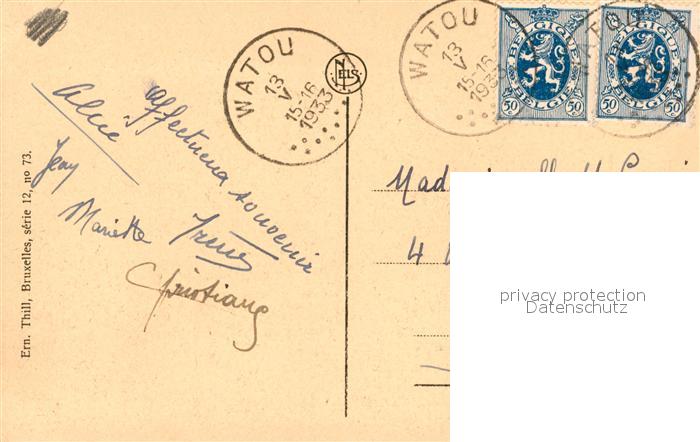 WATOU
13
V
15-16
1933
NELS
WATOU
13
V
15-16
1933
BELGIQUE
50 50
BELGIE
WATOU
BELGIQUE
50 50
BELGIE
Affectueux souvenir
Alice
Jean
Mariette
Irène
Christiane
4
privacy protection
Datenschutz
Ern. Thill, Bruxelles, série 12, no 73.